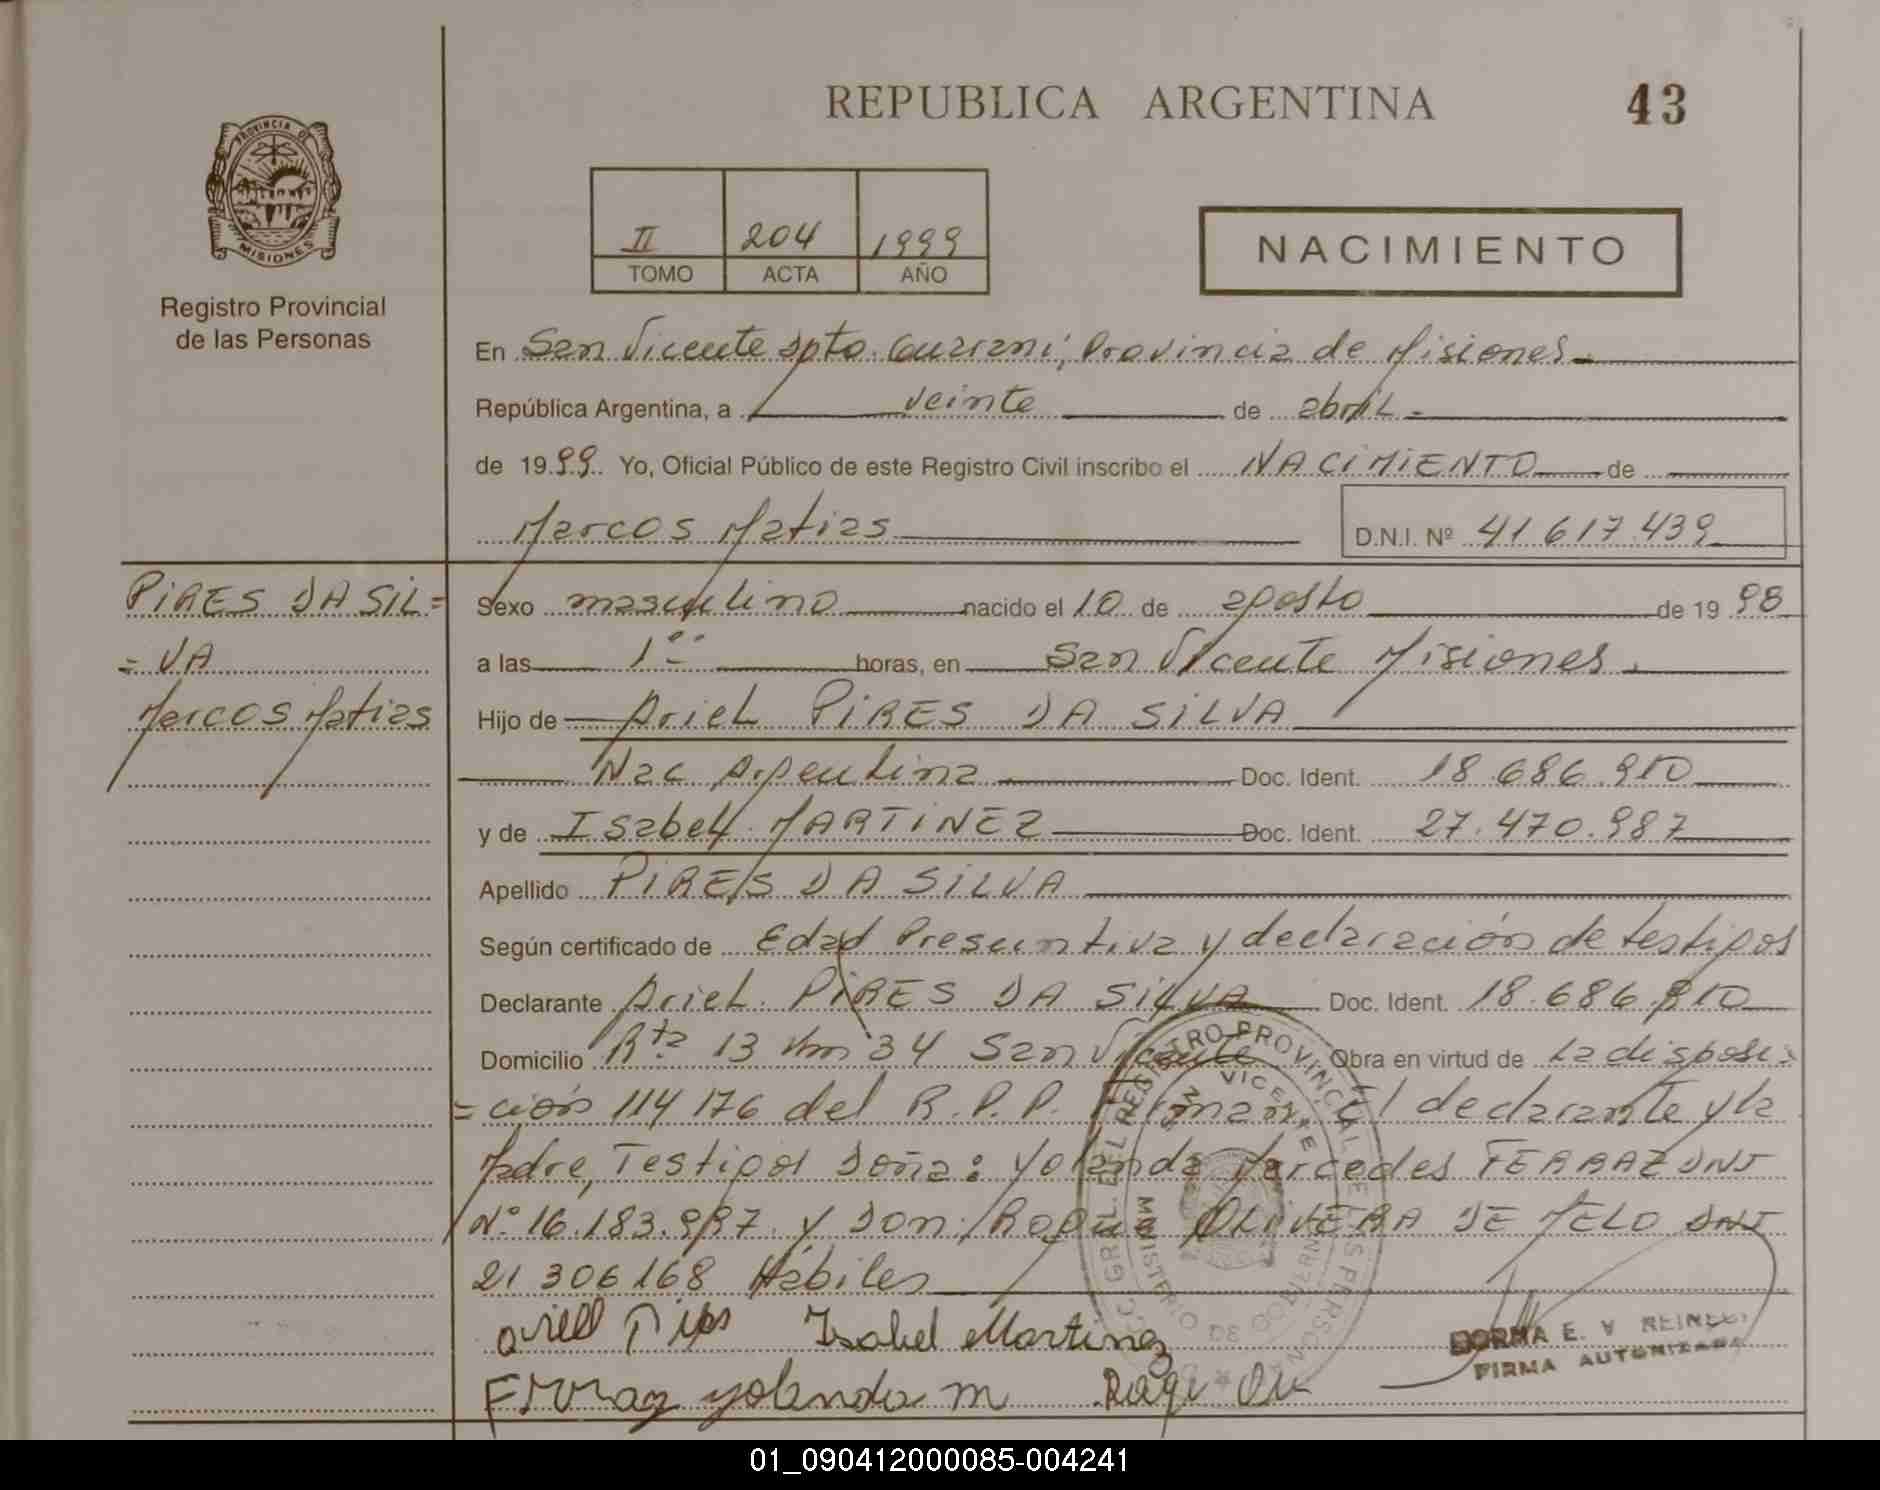 REPUBLICA ARGENTINA
43
PROVINCIA DE
MISIONES
Registro Provincial
de las Personas
II 204 1999
TOMO ACTA AÑO
NACIMIENTO
En San Vicente Dpto. Guarani; Provincia de Misiones.
República Argentina, a veinte de abril.
de 1999 Yo, Oficial Público de este Registro Civil inscribo el NACIMIENTO de
Marcos Matias
D.N.I. Nº 41.617.439
PIRES DA SIL=
=VA
Marcos Matias
Sexo masculino nacido el 10 de agosto de 1998
a las 1°° horas, en San Vicente Misiones.
Hijo de Ariel PIRES DA SILVA
Nac Argentina Doc. Ident. 18.686.910
y de Isabel MARTINEZ Doc. Ident. 27.470.987
Apellido PIRES DA SILVA
Según certificado de Edad Presuntiva y declaración de testigos
Declarante Ariel PIRES DA SILVA Doc. Ident. 18.686.910
Domicilio Rta 13 Km 34 San Vicente Obra en virtud de la disposi=
=ción 114176 del R.P.P. Firman El declarante y la
Madre, Testigos Doña: Yolanda Mercedes FERRAZ DNI
Nº 16.183.997 y Don: Roque OLIVERA DE MELO DNI
21306168 Hábiles
Isabel Martinez
Ferraz yolanda m
NORMA E. V
FIRMA AUTORIZADA
GRAL. DEL REGISTRO PROVINCIAL DE LAS PERSONAS
SAN VICENTE
MINISTERIO DE GOBIERNO
01_090412000085-004241